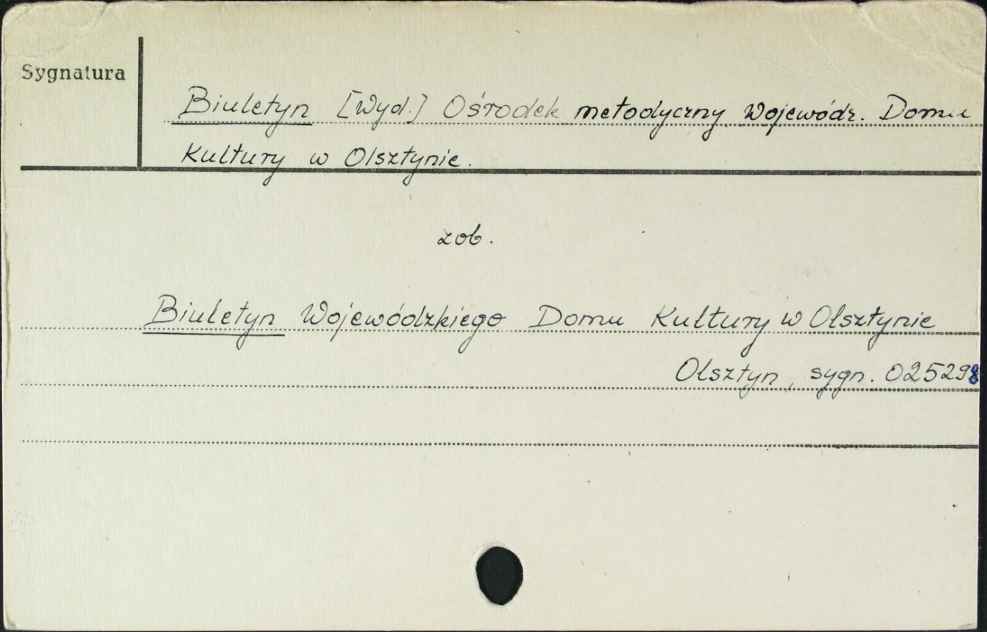 Sygnatura
Biuletyn [Wyd.] Ośrodek metodyczny Wojewódz. Domu
Kultury w Olsztynie.
zob.
Biuletyn Wojewódzkiego Domu Kultury w Olsztynie
Olsztyn, sygn. 025298